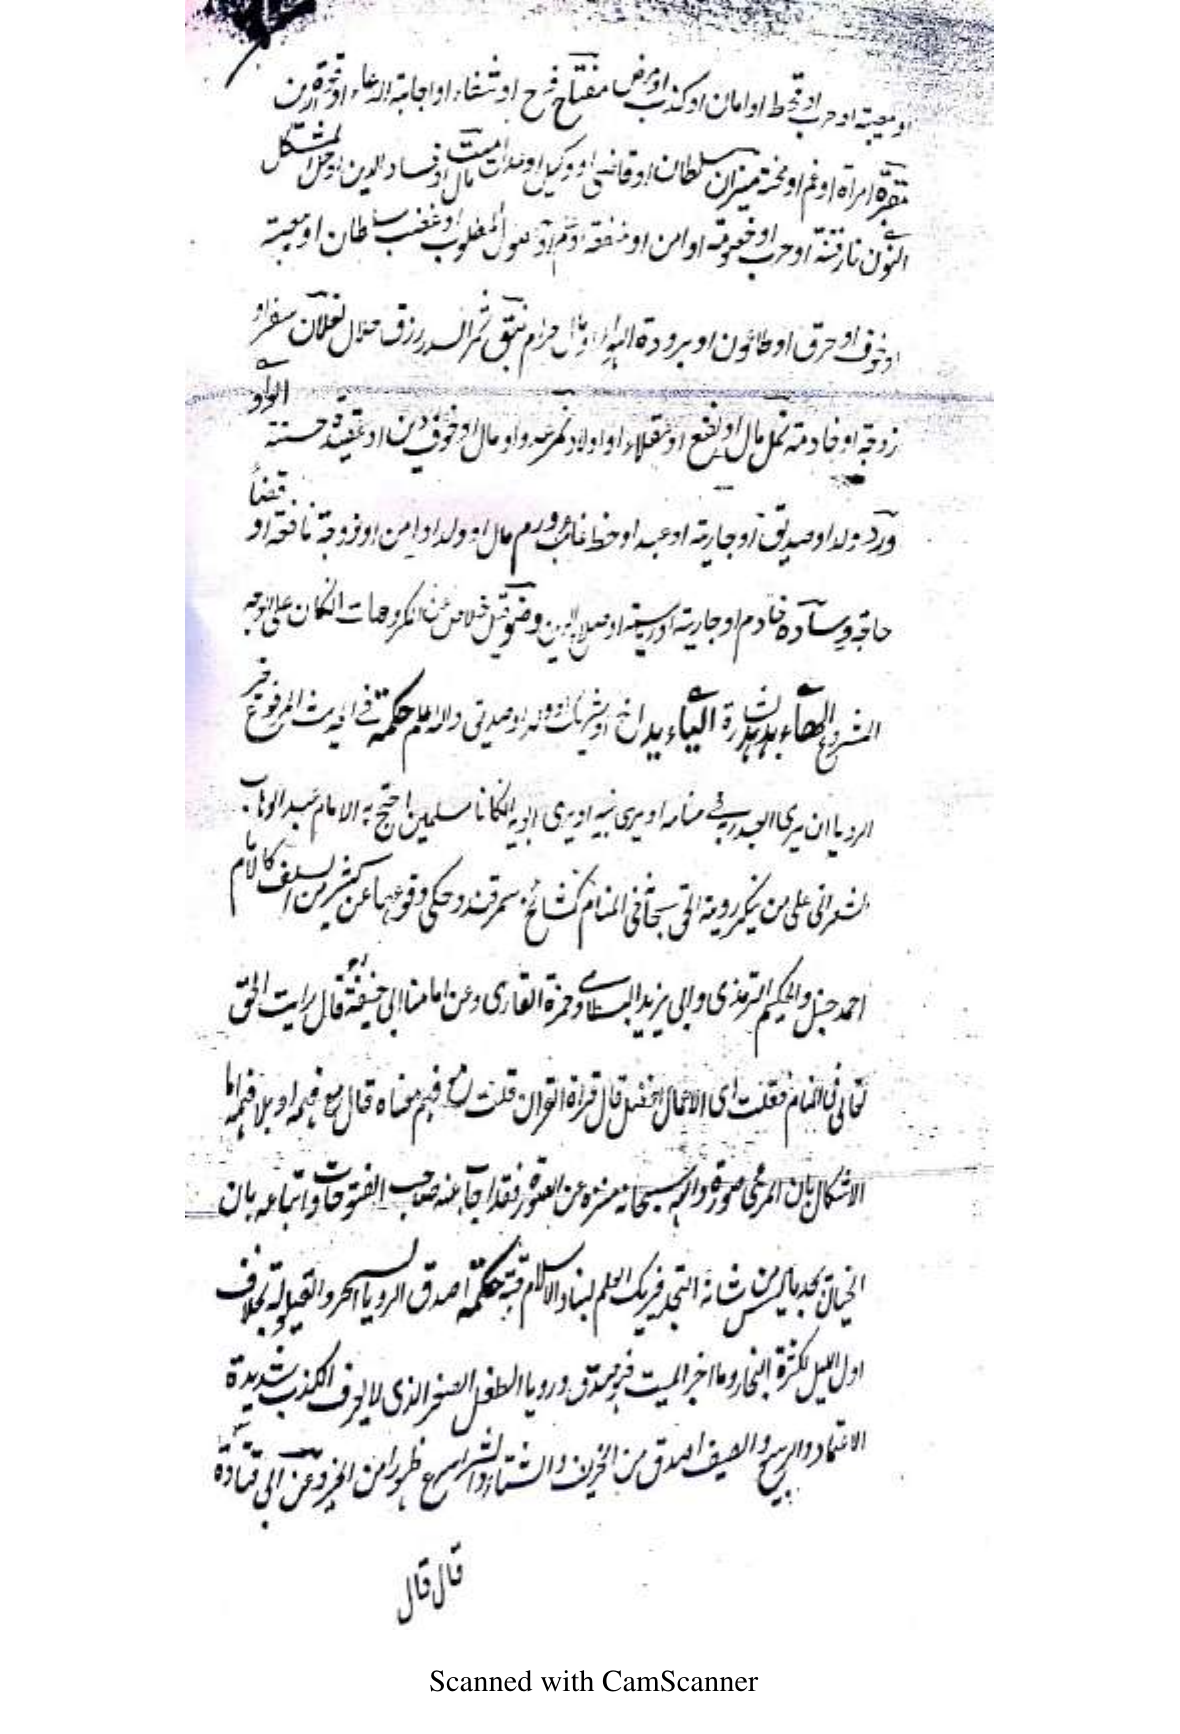 او مصيبة او حرب او قحط او امان او كذب او مرض مفتاح فرح او شفاء او اجابة الدعاء او قوة الدين
مقرة امراة او غم او محنة ميزان سلطان او قاضى او وكيل او ميت مال او فساد الدين او حل المشكل
النون نار فتنة او حرب او خصومة او امن او منفعة او حصول المطلوب او غضب سلطان او مصيبة
او خوف او حرق او طاعون او برودة او مال حرام رزق حلال نعلان سفر او
زوجة او خادمة نمل مال او نفع او اولاد نمر عدو او مال او خوف دين او عقيدة حسنة الواو
ورد ولد او صديق او جارية او عبد او خط غائب ورم مال او ولد او امن او زوجة نافعة او قضا
حاجة وسادة خادم او جارية او صلاح الدين وضو خلاص عن المكروهات ان كان على الوجه
المشروع الهاء هدهد الياء يد اخ او شريك او ولد او صديق والله اعلم حكمة فى الحديث المرفوع خير
الرويا ان يرى العبد ربه فى منامه او يرى نبيه او يرى ابويه ان كانا مسلمين احتج به الامام عبد الوهاب
الشعرانى على من ينكر روية الحق سبحانه فى المنام كمشائخ سمرقند وحكى وقوعها عن كثير من السلف كالامام
احمد حنبل والحكيم الترمذى وابى يزيد البسطامى وحمزة القارى وعن امامنا ابى حنيفة قال رايت الحق
تعالى فى المنام فقلت اى الاعمال افضل قال قراة القران قلت مع فهم معناه قال مع فهمه او بلا فهمه اما
الاشكال بان المرئى صورة والله سبحانه منزه عن الصورة فقد اجاب عنه صاحب الفتوحات واتباعه بان
الخيال يجسد ما ليس من شانه التجسد فيريك العلم لبنا والاسلام قبة حكمة اصدق الرويا السحر والقيلولة بخلاف
اول الليل لكثرة البخار وما اخبر الميت فهو صدق ورويا الطفل الصغير الذى لا يعرف الكذب شديدة
الاعتماد والربيع والصيف اصدق من الخريف والشتاء والشر اسرع ظهورا من الخير وعن ابى قتادة
قال قال
Scanned with CamScanner